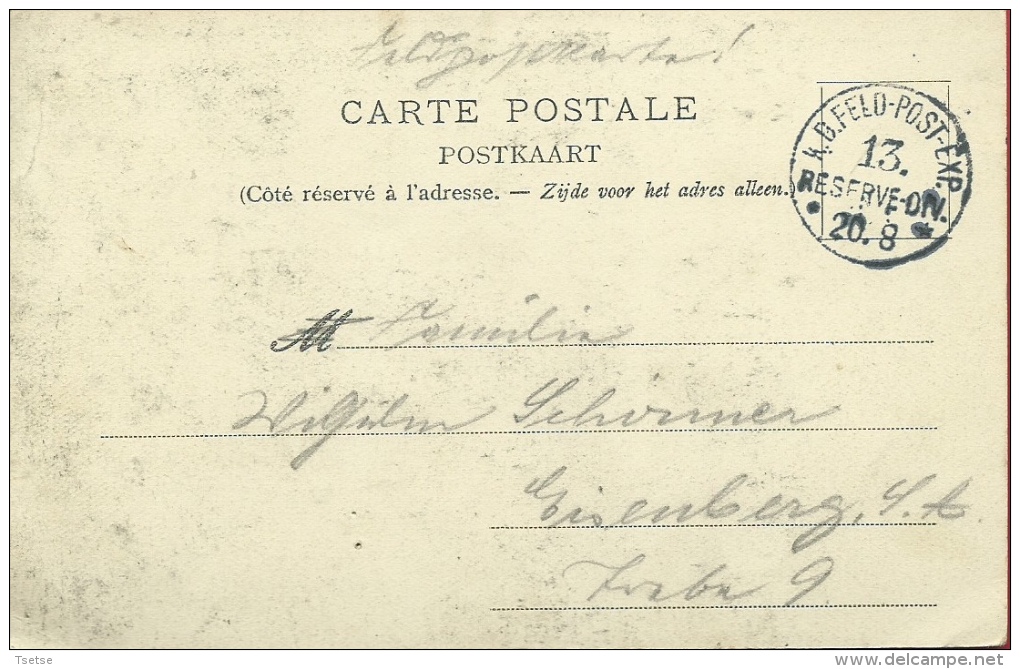 Feldpostkarte!
CARTE POSTALE
POSTKAART
(Côté réservé à l'adresse. — Zijde voor het adres alleen.)
K.D.FELD-POST-EXP.
13.
RESERVE-DIV.
* 20.8 *
M Familie
Wilhelm Schirmer
Eisenberg, S.A.
Trebe 9
Tsetse
delcampe.net